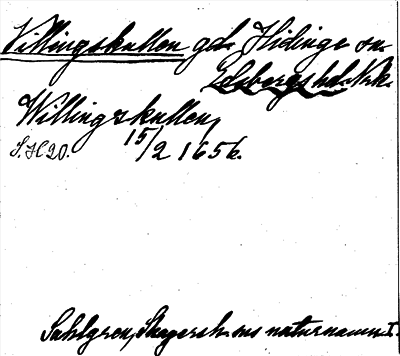 Villingskullen gd. Hidinge sn.
Edsbergs hd. Nrk.
Willingzkullen,
S.H 20. 15/2 1656.
Sahlgren, Skagersh. sns naturnamn I.